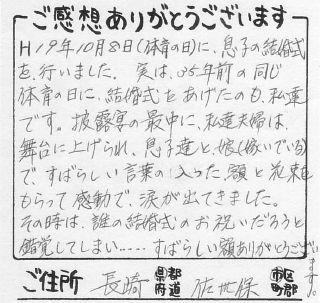 ご感想ありがとうございます
H19年10月8日(体育の日)に、息子の結婚式
を行いました。実は、35年前の同じ
体育の日に、結婚式をあげたのも、私達
です。披露宴の最中に、私達夫婦は、
舞台に上げられ、息子達と、娘(嫁いでいる)
で、すばらしい言葉の入った額と花束を
もらって感動で、涙が出てきました。
その時は、誰の結婚式のお祝いだろうと
錯覚してしまい……すばらしい額ありがとうござい
ます。
ご住所 長崎 都道府県 佐世保 市区町郡